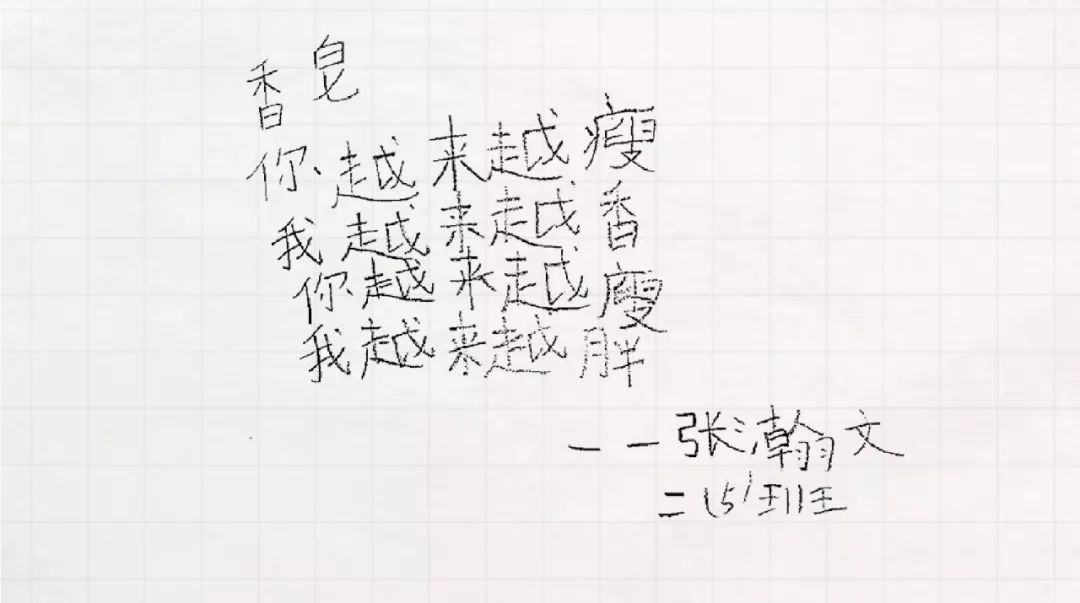 香皂
你越来越瘦
我越来越香
你越来越瘦
我越来越胖
——张瀚文
二（5）班